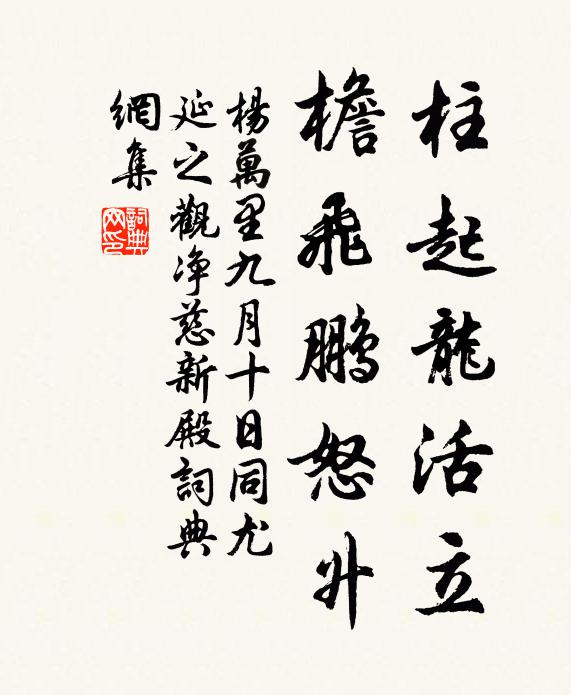 柱起龍活立
檐飛鵬怒升
楊萬里九月十日同尤
延之觀净慈新殿詞典
網集
詞典
网印